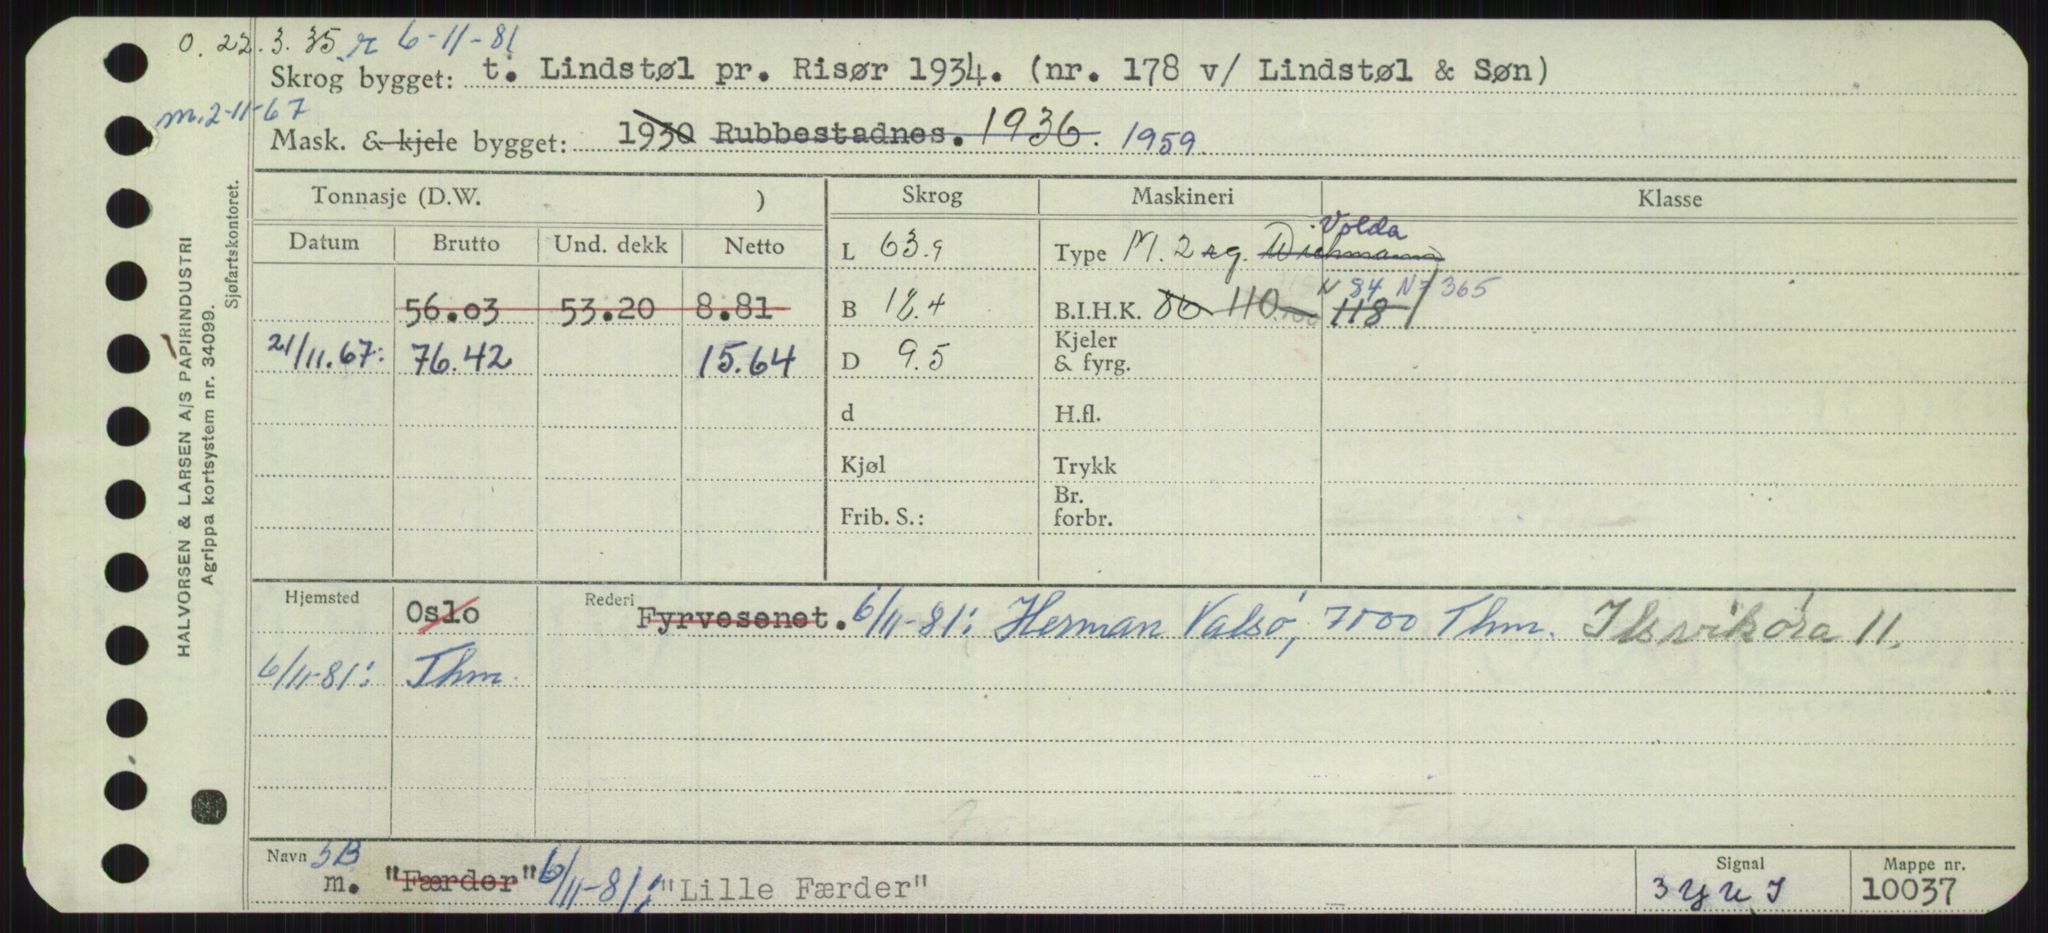 0. 22.3.35 r 6-11-81
Skrog bygget: t. Lindstøl pr. Risør 1934. (nr. 178 v/ Lindstøl & Søn)
m. 2-11-67
Mask. & kjele bygget: 1930 Rubbestadnes. 1936. 1959.
Tonnasje (D.W. ) Skrog Maskineri Klasse
Datum Brutto Und. dekk Netto
L 63.9 Type M. 2 sg. Wichmann Volda
56.03 53.20 8.81
B 18.4 B.I.H.K. 80 110 118 N 84 N = 365
21/11.67: 76.42 15.64
D 9.5 Kjeler & fyrg.
d H.fl.
Kjøl Trykk
Frib. S.: Br. forbr.
Hjemsted Oslo Rederi Fyrvesenet. 6/11-81: Herman Valsø, 7000 Thm. Ilsvikøra 11.
6/11-81: Thm.
Navn SB m. "Færder" 6/11-81: "Lille Færder"
Signal
Mappe nr. 10037
HALVORSEN & LARSEN A/S PAPIRINDUSTRI
Agrippa kortsystem nr. 34099.
Sjøfartskontoret.